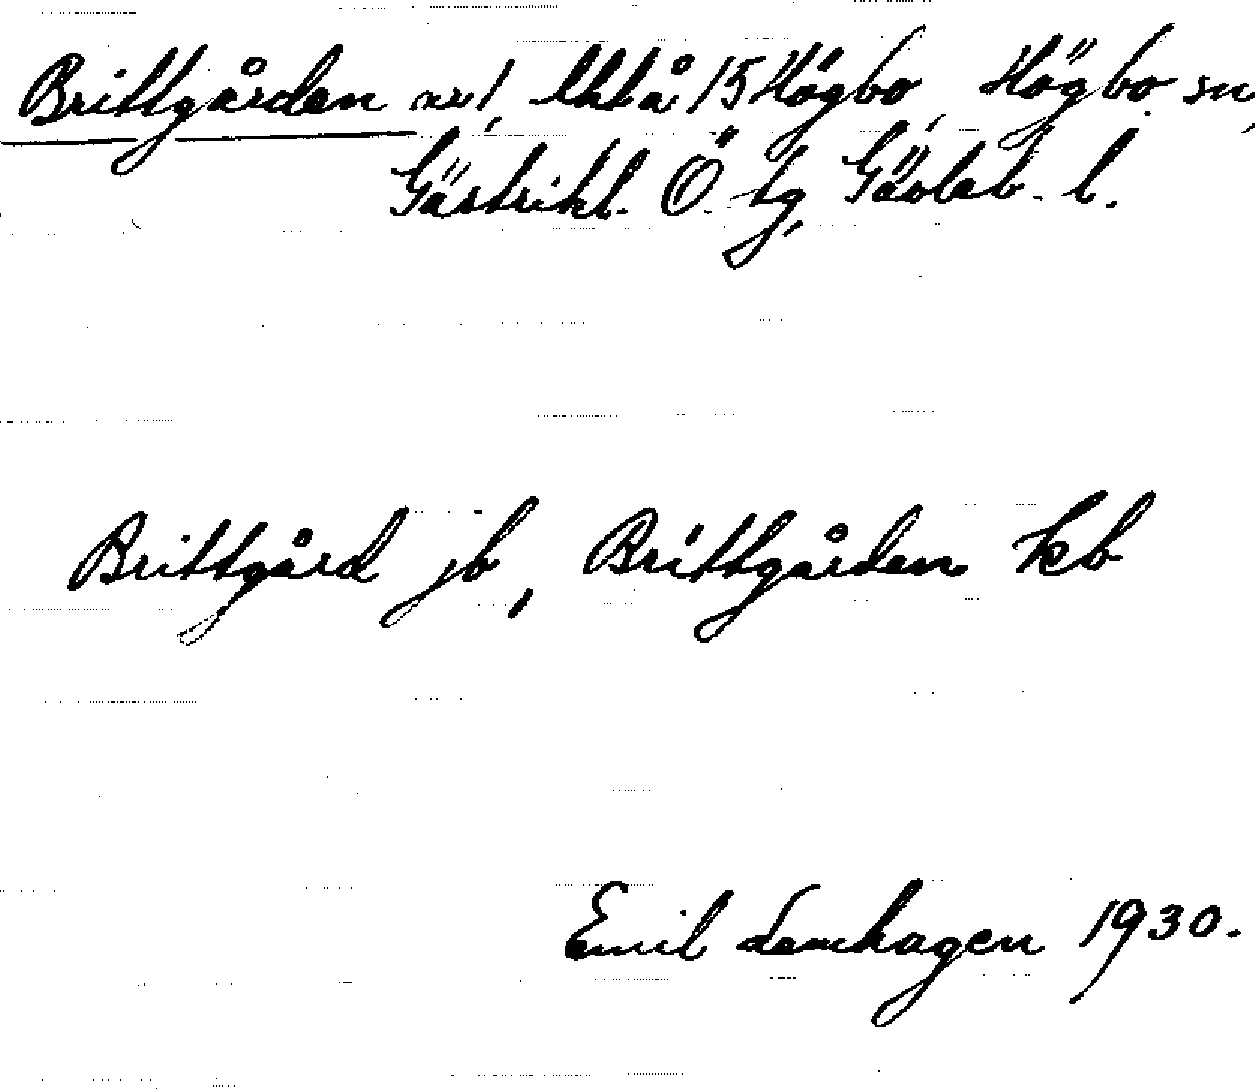 Brittgården 15 Högbo, Högbo sn,
Gästrikl. Ö. tg, Gävleb. l.
Brittgård jb, Brittgården kb
Emil Lemhagen 1930.